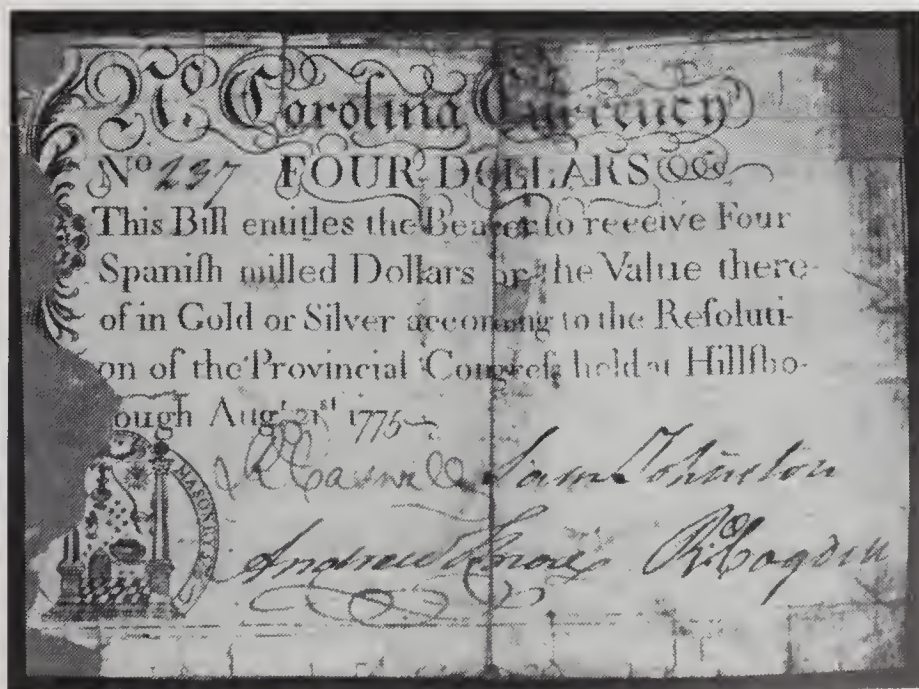 No. Carolina Currency
No 237 FOUR DOLLARS
This Bill entitles the Bearer to receive Four
Spaniſh milled Dollars or the Value there-
of in Gold or Silver according to the Reſoluti-
on of the Provincial Congreſs held at Hillſbo-
rough Augt 21st 1775
R Caswell Sam Johnston
Andrew Knox R Cogdell
MASONRY